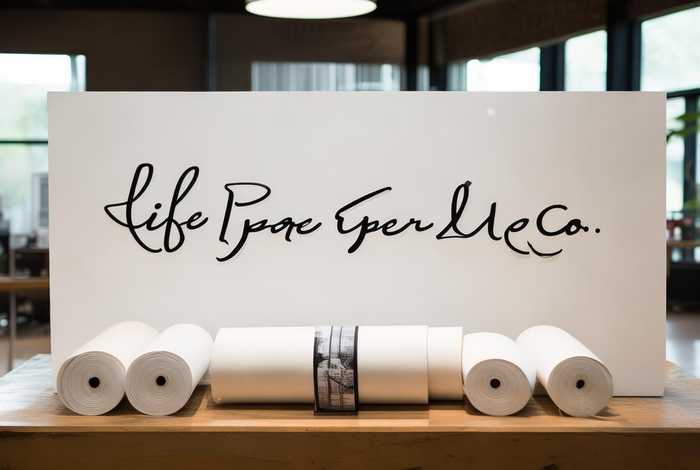 Life Ppoe Eper Me Co..